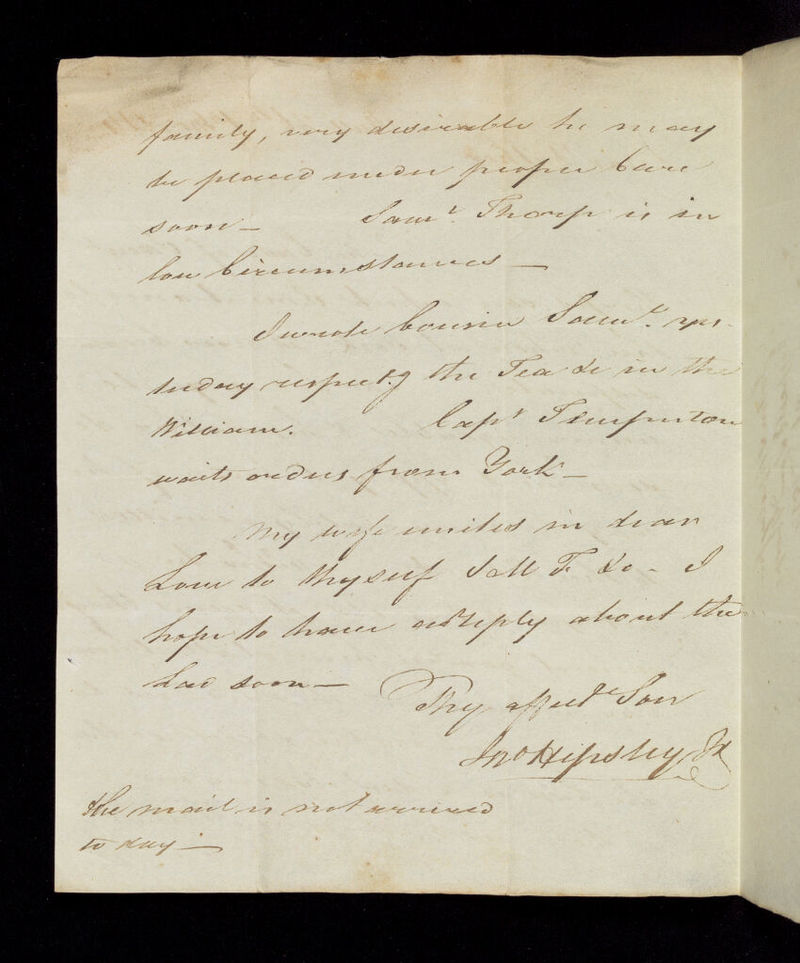 family, very desirable he may
be placed under proper Care
soon — Saml. Thorp is in
low Circumstances —
I wrote Cousin Saml. yes-
terday respectg the Tea &c in the
William. Capt Tempertom
waits orders from York —
My wife unites in dear
Love to thyself &c - I
hope to have a reply about the
Lad soon —
Thy affecte Son
Jno Hipsley Jr
the mail is not arrived
to day —